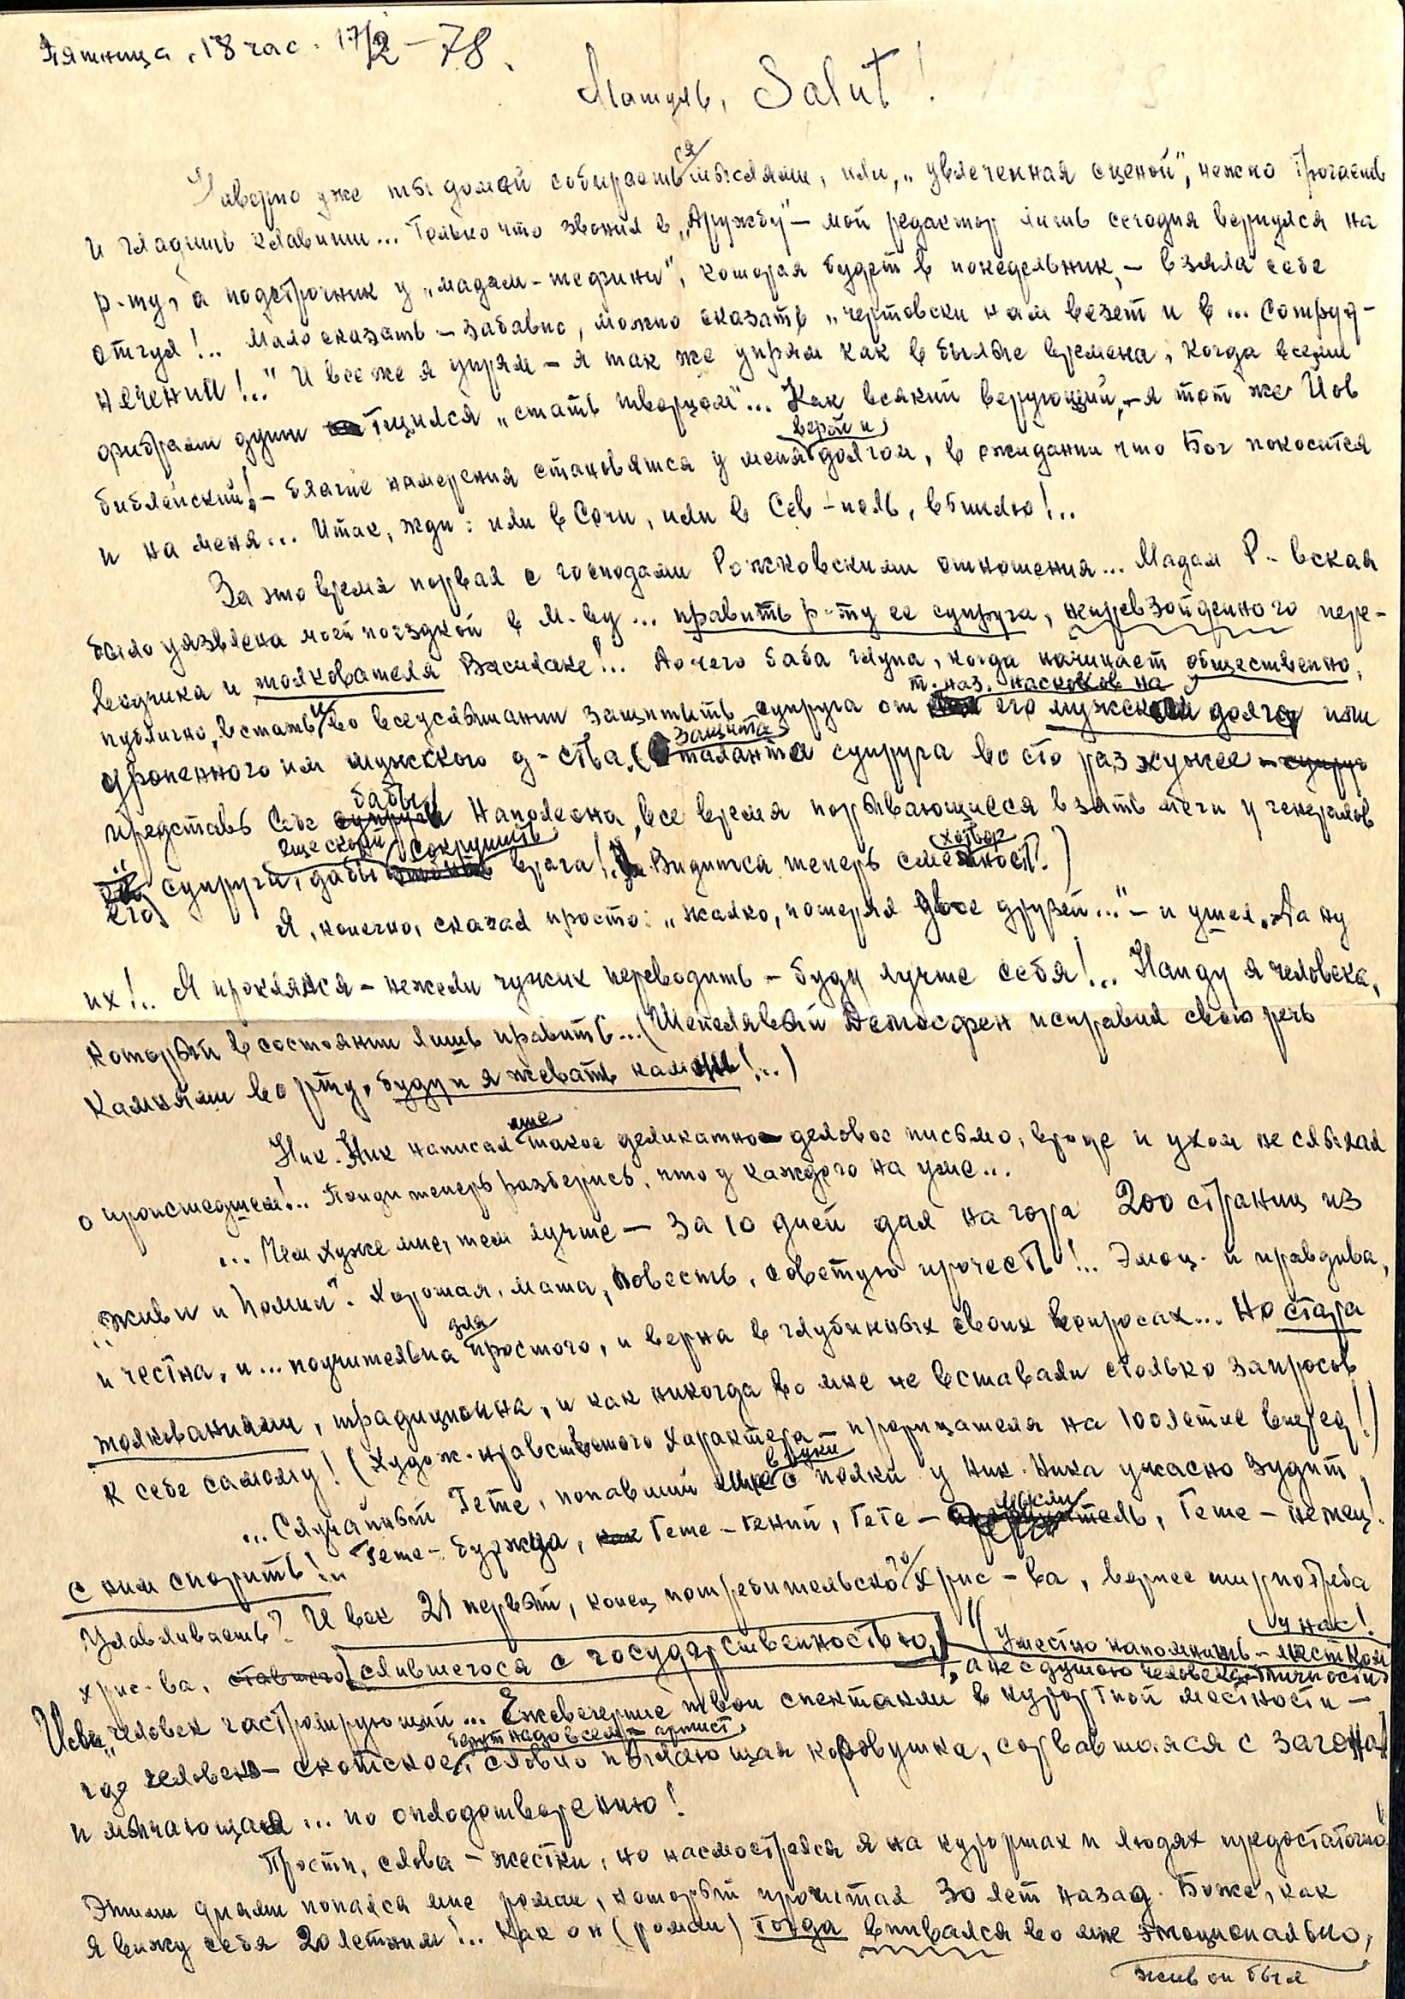 Пятница, 18 час. 17/2 – 78.
Матуль, Salut!
Наверно уже ты домой собираешься мыслями, или, „увлеченная сценой", нежно трогаешь
и гладишь клавиши... Только что звонил в „Дружбу" – мой редактор лишь сегодня вернулся на
р-ту, а подстрочник у „мадам-", которая будет в понедельник, – взяла себе
отгул!.. Мало сказать – забавно, можно сказать „чертовски нам везет и в... сотруд-
ничении!.." И все же я упрям – я так же упрям как в былые времена, когда всеми
фибрами души тщился „стать творцом"... Как всякий верующий, – я тот же Иов
библейский! – благие намерения становятся у меня верой и долгом, в ожидании что Бог покосится
и на меня... Итак, жди: или в Сочи, или в Сев-поль, вбишлю!..
За это время порвал с господами Рожковскими отношения... Мадам Р-вская
было уязвлена моей поездкой в М-ву... править р-ту ее супруга, непревзойденного пере-
водчика и толкователя Василаке!.. До чего баба глупа, когда начинает общественно,
публично, встать и во всеуслышании защитить супруга от т. наз. насков на его мужского долга или
оброненного им мужского д-ства. (Защита таланта супруга во сто раз хужее –
представь себе бабы Наполеона, все время порывающиеся взять мечи у генералов
его супруга, еще скорей, дабы сокрушить врага!.. Видится теперь смехотвор ность?)
Я, конечно, сказал просто: „Жалко, потерял двое друзей..." – и ушел. Да ну
их!.. Я проклялся – нежели чужих переводить – буду лучше себя!.. Найду я человека,
который в состоянии лишь править... (Шепелявый Демосфен исправил свою речь
камнями во рту, буду и я жевать камни!...)
Ник. Ник написал мне такое деликатно деловое письмо, вроде и ухом не слыхал
о происшедшем!.. Пойди теперь разберись, что у каждого на уме...
... Чем хуже мне, тем лучше – за 10 дней дал на гора 200 страниц из
„Живи и помни". Хорошая, мама, повесть, советую прочесть!.. Эмоц. и правдива,
и честна, и... поучительна для простого, и верна в глубинных своих вопросах... Но стара
толкованиями, традиционна, и как никогда во мне не вставали столько запросов
к себе самому! (Худож.-нравственного характера – прорицателя на 100летие вперед!)
... Случайный Гете, попавший мне в руки с полки у Ник. Ника ужасно зудит
с ним спорить!.. Гете – буржуа, Гете – гений, Гете – мыслитель, Гете – немец!
Улавливаешь? И век 21 первый, конец потребительского хрис-ва, вернее ширпотреба
хрис-ва, слившегося с государственностью, (Уместно напомнить – жесткой у нас!
, а не с душою человека-личности)
Исви, „человек гастролирующий... Ежевечерние твои спектакли в курортной местности –
где человек – скотское, берут надо всем – артист словно пылающая коровушка, сорвавшаяся с загона
и мычающая... по оплодотворению!
Прости, слова – жестки, но насмострелся я на курортах и людях предостаточно!
Этими днями попался мне роман, который прочитал 30 лет назад. Боже, как
я вижу себя 20летним!.. Как он (роман) тогда впивался во мне эмоционально,
жив он был